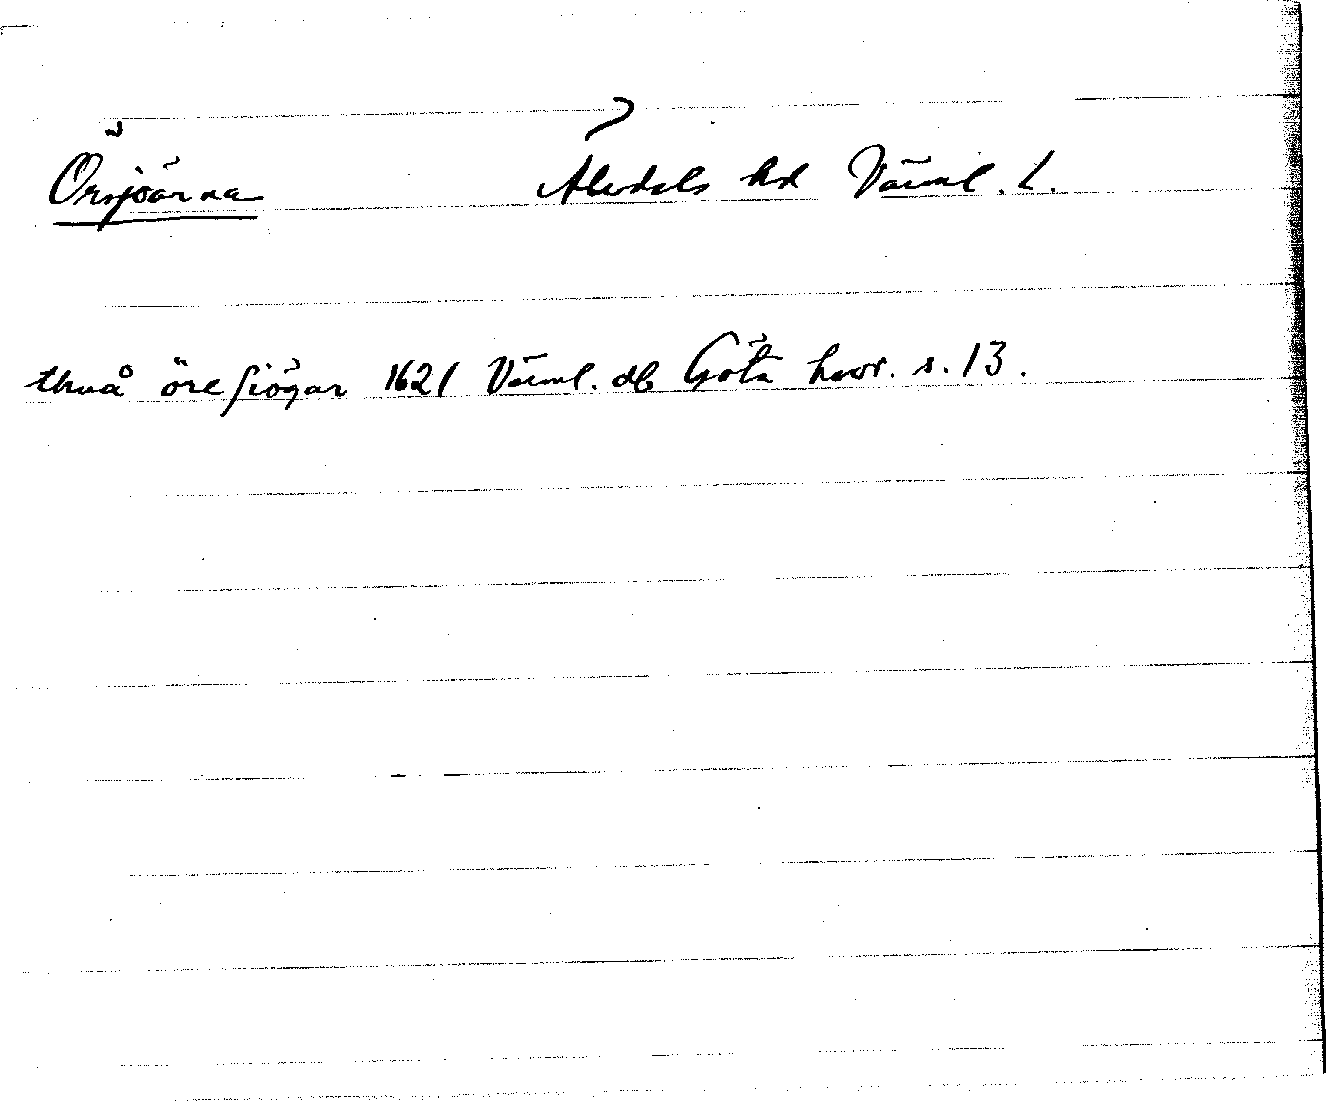 Örsjöarna Älvdals hd Värml. L.
thuå öresiögar 1621 Värml. db Göta hovr. s. 13.